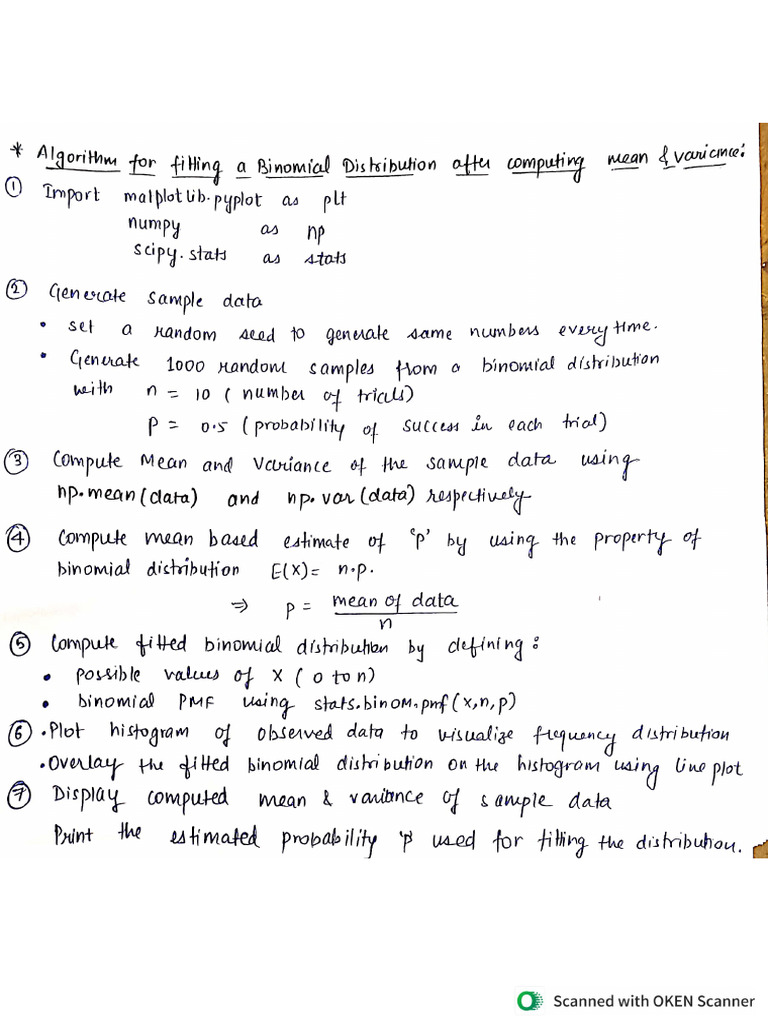 * Algorithm for fitting a Binomial Distribution after computing mean & variance:
① Import malplotlib.pyplot as plt
numpy as np
scipy.stats as stats
② Generate sample data
• set a random seed to generate same numbers everytime.
• Generate 1000 random samples from a binomial distribution
with n = 10 (number of trials)
P = 0.5 (probability of success in each trial)
③ Compute Mean and Variance of the sample data using
np.mean(data) and np.var(data) respectively
④ Compute mean based estimate of 'p' by using the property of
binomial distribution E(X) = n.p.
⇒ p = mean of data
n
⑤ Compute fitted binomial distribution by defining:
• possible values of X (0 to n)
• binomial PMF using stats.binom.pmf(x,n,p)
⑥ • Plot histogram of observed data to visualize frequency distribution
• Overlay the fitted binomial distribution on the histogram using line plot
⑦ Display computed mean & variance of sample data
Print the estimated probability 'p' used for fitting the distribution.
Scanned with OKEN Scanner